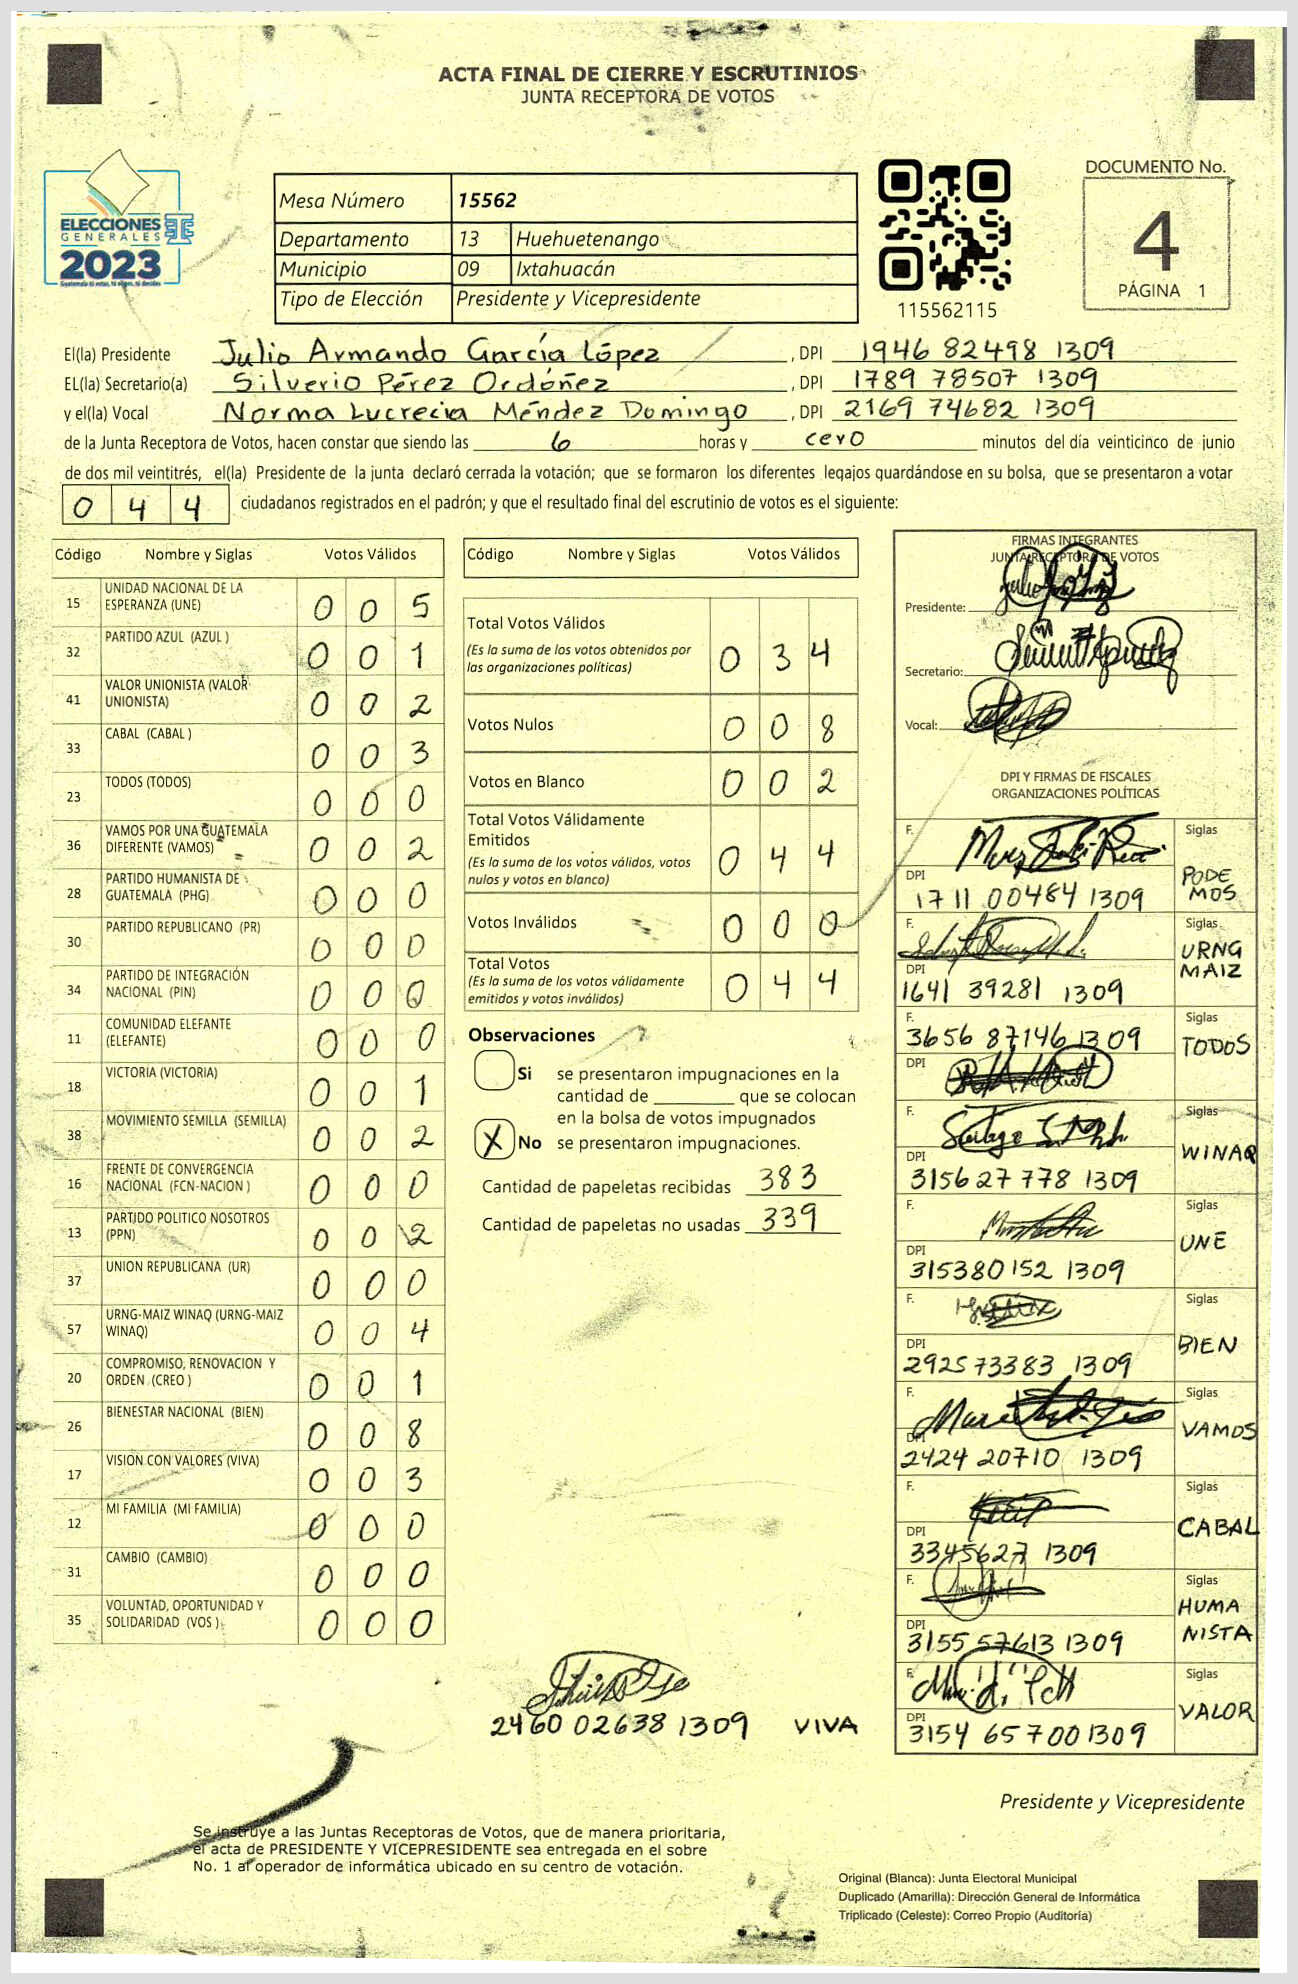 ACTA FINAL DE CIERRE Y ESCRUTINIOS
JUNTA RECEPTORA DE VOTOS
ELECCIONES
GENERALES
2023
Guatemala tú votas, tú eliges, tú decides
Mesa Número 15562
Departamento 13 Huehuetenango
Municipio 09 Ixtahuacán
Tipo de Elección Presidente y Vicepresidente
115562115
DOCUMENTO No.
4
PÁGINA 1
El(la) Presidente Julio Armando García López , DPI 1946 82498 1309
EL(la) Secretario(a) Silverio Pérez Ordóñez , DPI 1789 78507 1309
y el(la) Vocal Norma Lucrecia Méndez Domingo , DPI 2169 74682 1309
de la Junta Receptora de Votos, hacen constar que siendo las 6 horas y cero minutos del día veinticinco de junio
de dos mil veintitrés, el(la) Presidente de la junta declaró cerrada la votación; que se formaron los diferentes legajos guardándose en su bolsa, que se presentaron a votar
0 4 4 ciudadanos registrados en el padrón; y que el resultado final del escrutinio de votos es el siguiente:
Código Nombre y Siglas Votos Válidos
15 UNIDAD NACIONAL DE LA ESPERANZA (UNE) 0 0 5
32 PARTIDO AZUL (AZUL ) 0 0 1
41 VALOR UNIONISTA (VALOR UNIONISTA) 0 0 2
33 CABAL (CABAL ) 0 0 3
23 TODOS (TODOS) 0 0 0
36 VAMOS POR UNA GUATEMALA DIFERENTE (VAMOS) 0 0 2
28 PARTIDO HUMANISTA DE GUATEMALA (PHG) 0 0 0
30 PARTIDO REPUBLICANO (PR) 0 0 0
34 PARTIDO DE INTEGRACIÓN NACIONAL (PIN) 0 0 0
11 COMUNIDAD ELEFANTE (ELEFANTE) 0 0 0
18 VICTORIA (VICTORIA) 0 0 1
38 MOVIMIENTO SEMILLA (SEMILLA) 0 0 2
16 FRENTE DE CONVERGENCIA NACIONAL (FCN-NACION ) 0 0 0
13 PARTIDO POLITICO NOSOTROS (PPN) 0 0 2
37 UNION REPUBLICANA (UR) 0 0 0
57 URNG-MAIZ WINAQ (URNG-MAIZ WINAQ) 0 0 4
20 COMPROMISO, RENOVACION Y ORDEN (CREO ) 0 0 1
26 BIENESTAR NACIONAL (BIEN) 0 0 8
17 VISION CON VALORES (VIVA) 0 0 3
12 MI FAMILIA (MI FAMILIA) 0 0 0
31 CAMBIO (CAMBIO) 0 0 0
35 VOLUNTAD, OPORTUNIDAD Y SOLIDARIDAD (VOS ) 0 0 0
Código Nombre y Siglas Votos Válidos
Total Votos Válidos
(Es la suma de los votos obtenidos por
las organizaciones políticas) 0 3 4
Votos Nulos 0 0 8
Votos en Blanco 0 0 2
Total Votos Válidamente
Emitidos
(Es la suma de los votos válidos, votos
nulos y votos en blanco) 0 4 4
Votos Inválidos 0 0 0
Total Votos
(Es la suma de los votos válidamente
emitidos y votos inválidos) 0 4 4
Observaciones
Si se presentaron impugnaciones en la
cantidad de ________ que se colocan
en la bolsa de votos impugnados
X No se presentaron impugnaciones.
Cantidad de papeletas recibidas 383
Cantidad de papeletas no usadas 339
2460 02638 1309 VIVA
FIRMAS INTEGRANTES
JUNTA RECEPTORA DE VOTOS
Presidente:
Secretario:
Vocal:
DPI Y FIRMAS DE FISCALES
ORGANIZACIONES POLÍTICAS
F. Siglas
DPI 1711 00484 1309 PODEMOS
F. Siglas
DPI 1641 39281 1309 URNG MAIZ
F. 3656 87146 1309 Siglas
DPI TODOS
F. Siglas
DPI 3156 27 778 1309 WINAQ
F. Siglas
DPI 315380152 1309 UNE
F. Siglas
DPI 292573383 1309 BIEN
F. Siglas
DPI 2424 20710 1309 VAMOS
F. Siglas
DPI 3345627 1309 CABAL
F. Siglas
DPI 3155 57613 1309 HUMANISTA
F. Siglas
DPI 3154 65700 1309 VALOR
Presidente y Vicepresidente
Se instruye a las Juntas Receptoras de Votos, que de manera prioritaria,
el acta de PRESIDENTE Y VICEPRESIDENTE sea entregada en el sobre
No. 1 al operador de informática ubicado en su centro de votación.
Original (Blanca): Junta Electoral Municipal
Duplicado (Amarilla): Dirección General de Informática
Triplicado (Celeste): Correo Propio (Auditoría)